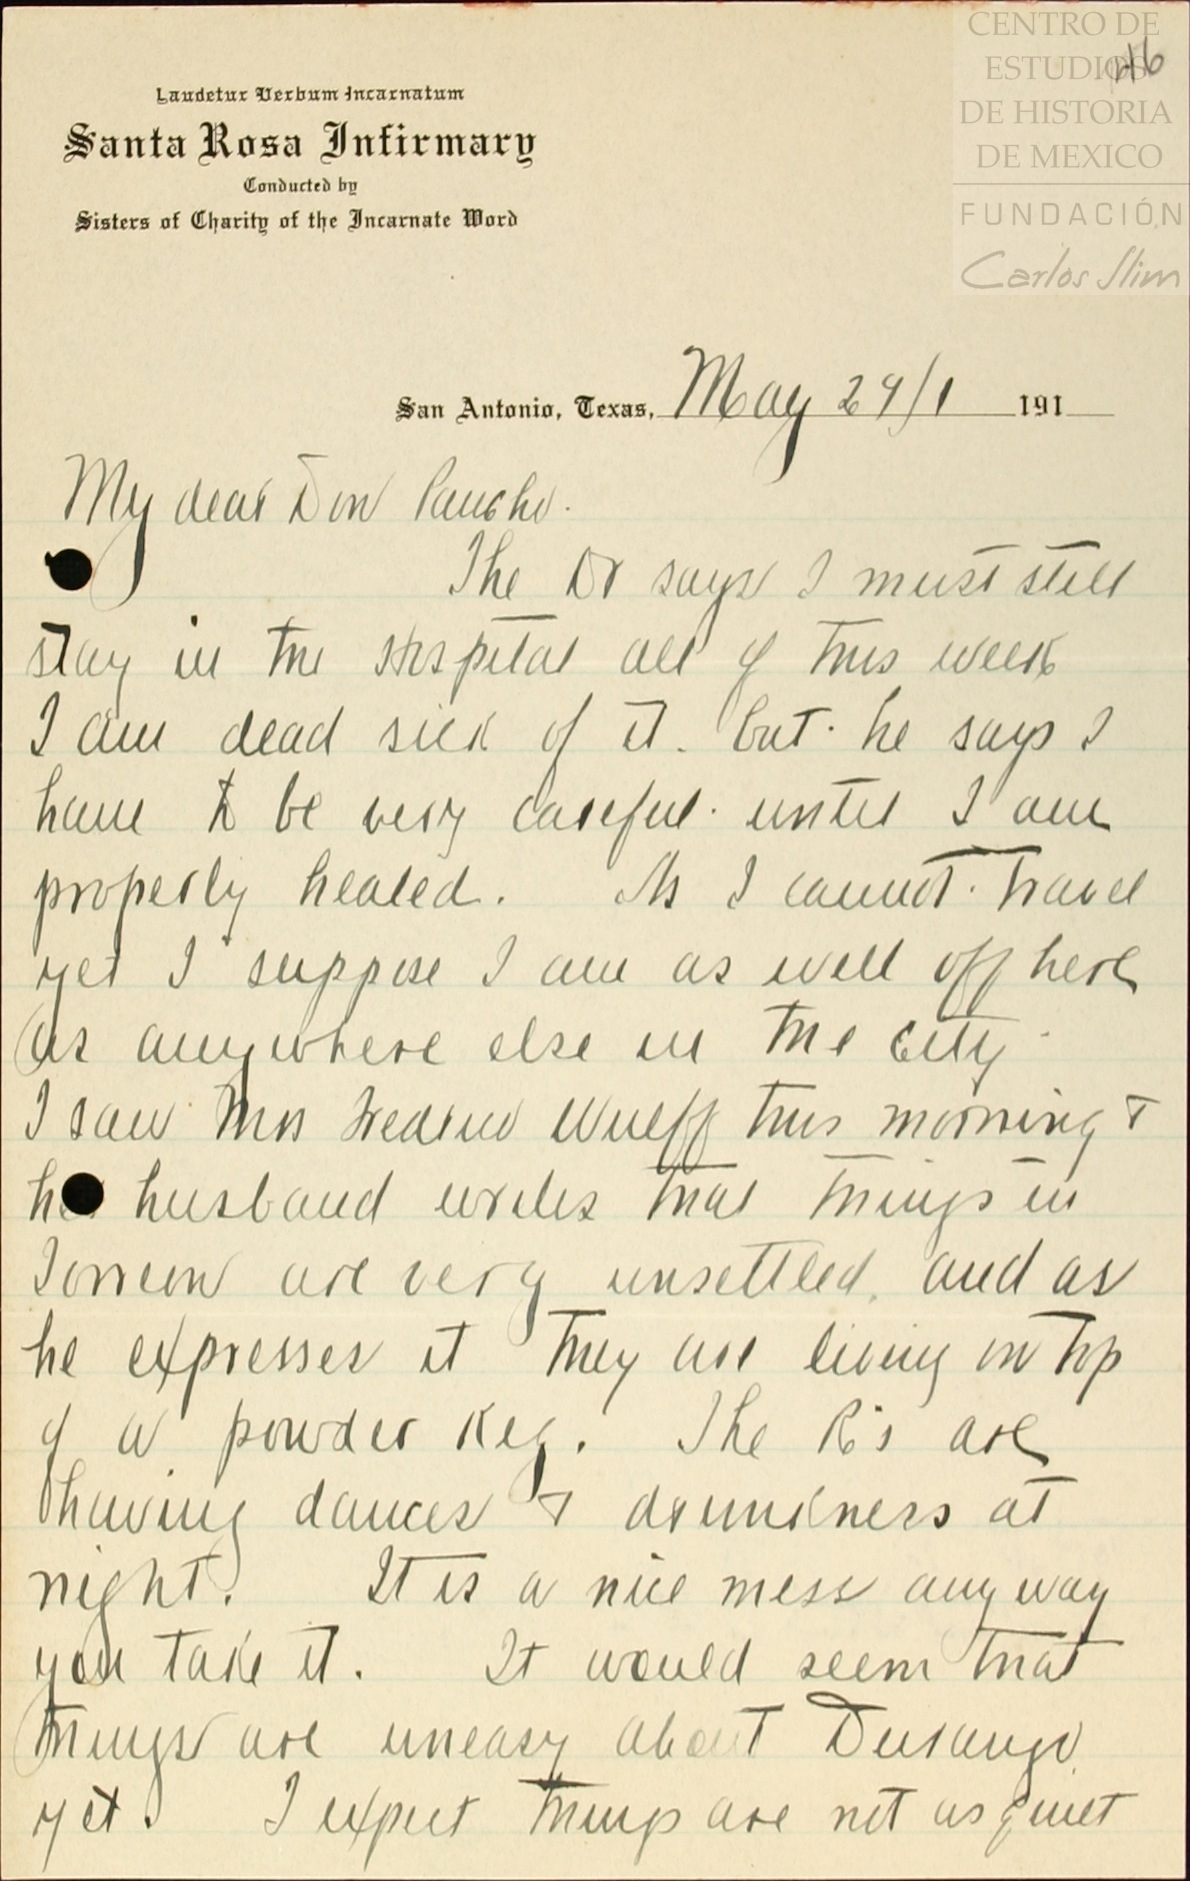 CENTRO DE
ESTUDIOS
DE HISTORIA
DE MEXICO
FUNDACIÓN
Carlos Slim
Laudetur Verbum Incarnatum
Santa Rosa Infirmary
Conducted by
Sisters of Charity of the Incarnate Word
San Antonio, Texas, May 29/1 191
My dear Don Pancho.
The Dr says I must still
stay in the Hospital all of this week
I am dead sick of it. but he says I
have to be very careful until I am
properly healed. As I cannot travel
yet I suppose I am as well off here
as anywhere else in the city
I saw Mrs Wulff this morning &
her husband writes that things in
Torreon are very unsettled, and as
he expresses it they are living on top
of a powder keg. The R's are
having dances & drunkness at
night. It is a nice mess any way
you take it. It would seem that
things are uneasy about Durango
yet. I expect things are not as quiet